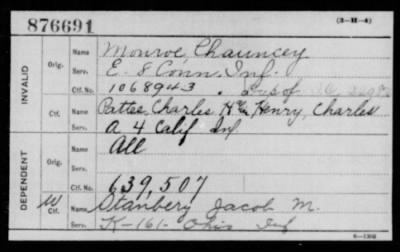 876691 (3-H-4)
INVALID Orig. Name Monroe Chauncey
Serv. E- 8 Conn. Inf.
Ctf. No. 1068943 . Dup of
Ctf. Name Charles Henry, Charles
Serv. A 4 Calif Inf
DEPENDENT Orig. Name All
Serv.
Ctf. No. 639,507
W Ctf. Name Stanbery Jacob M.
Serv. K-161- Ohio Inf